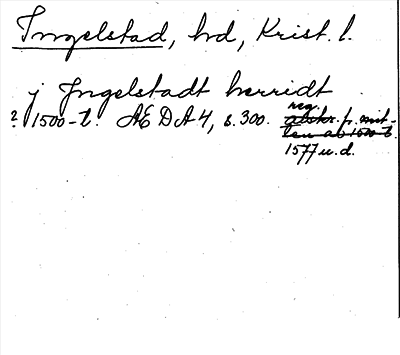 Ingelstad, hd, Krist. l.
j Jngelstadt herridt
reg.
? 1500-t. ÆDA 4, s. 300. afskr. fr. mit-
ten ab 1500-t.
1577 u.d.